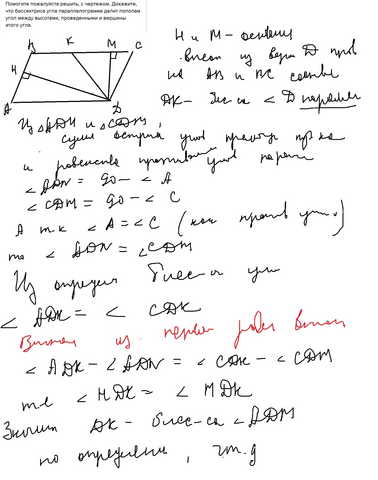 Помогите пожалуйста решить, с чертежом. Докажите,
что биссектриса угла параллелограмма делит пополам
угол между высотами, проведенными и вершины
этого угла.
B K M C
H
A D
H и M – основания
высот из верш D пров
на AB и BC соотве
DK – бисс-са < D паралле
Из △ADH и △CDM,
сумме острых углов прямоуг
и равенства противоп углов парал
< ADH = 90 – < A
< CDM = 90 – < C
А т.к < A = < C (как против угл.)
то < ADH = < CDM
Из определ бисс-сы угла
< ADK = < CDK
Вычтем из первого рав второе
< ADK – < ADH = < CDK – < CDM
т.е < HDK = < MDK
Значит DK – бисс-са < HDM
по определению, чт.д